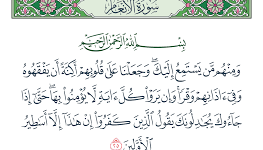 سُورَةُ الأَنْعَامِ
بِسْمِ اللَّهِ الرَّحْمَٰنِ الرَّحِيمِ
وَمِنْهُم مَّن يَسْتَمِعُ إِلَيْكَ ۖ وَجَعَلْنَا عَلَىٰ قُلُوبِهِمْ أَكِنَّةً أَن يَفْقَهُوهُ
وَفِي آذَانِهِمْ وَقْرًا ۚ وَإِن يَرَوْا كُلَّ آيَةٍ لَّا يُؤْمِنُوا بِهَا ۚ حَتَّىٰ إِذَا
جَاءُوكَ يُجَادِلُونَكَ يَقُولُ الَّذِينَ كَفَرُوا إِنْ هَٰذَا إِلَّا أَسَاطِيرُ
الْأَوَّلِينَ ٢٥